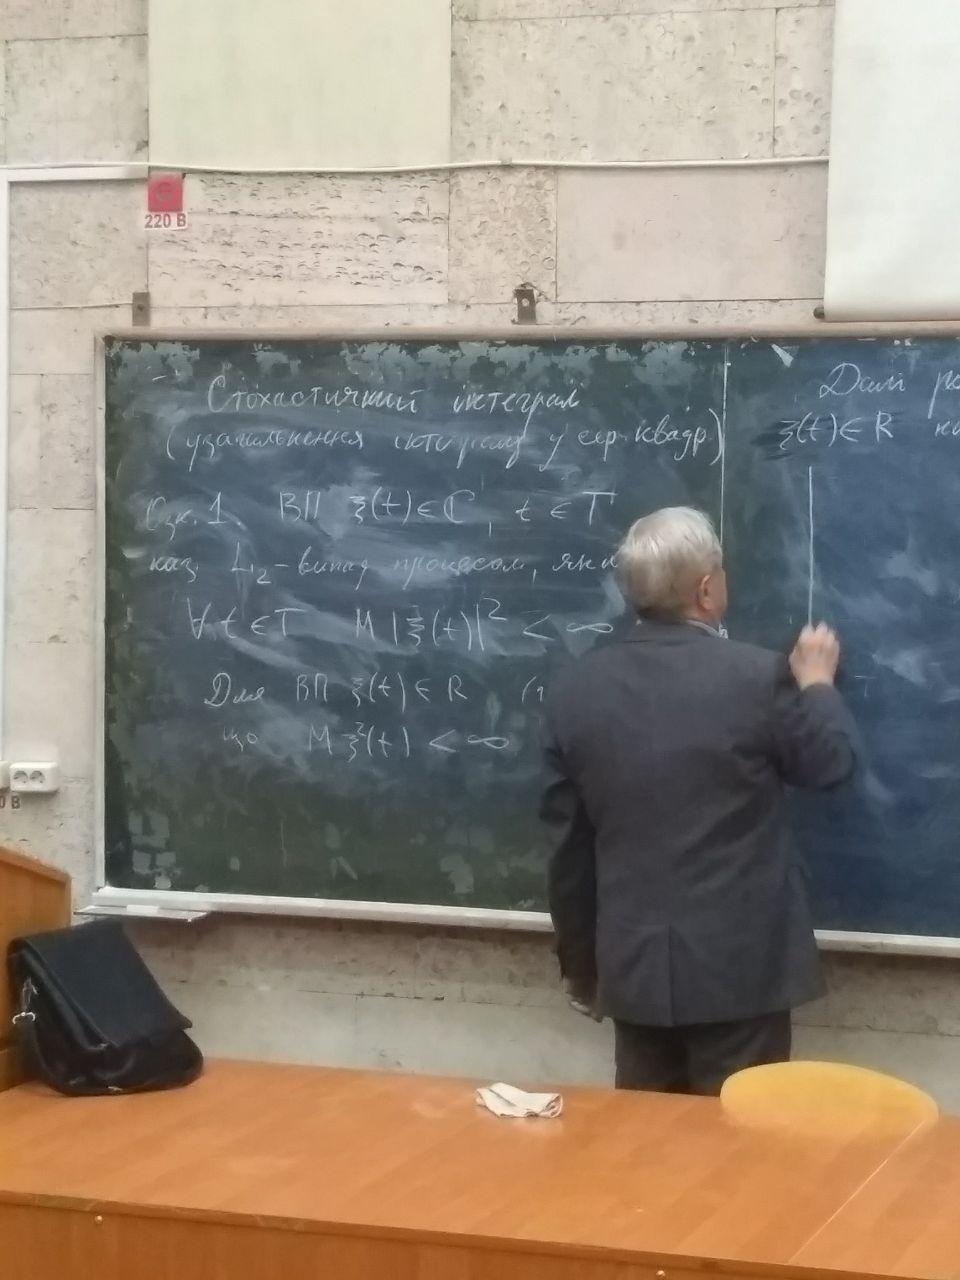 220 В
Стохастичний інтеграл
(узагальнення інтегралу у сер. квадр.)
Озн. 1. ВП ξ(t) ∈ C, t ∈ T
наз. L₂-випад процесом, як
∀ t ∈ T M |ξ(t)|² < ∞
Для ВП ξ(t) ∈ R (
що M ξ²(t) < ∞
Далі
ξ(t) ∈ R
0 В